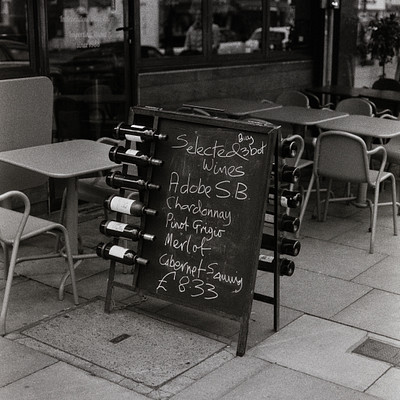 Selected 3 bot
Wines
Adobe S.B.
Chardonnay
Pinot Grigio
Merlot
Cabernet
£8.33